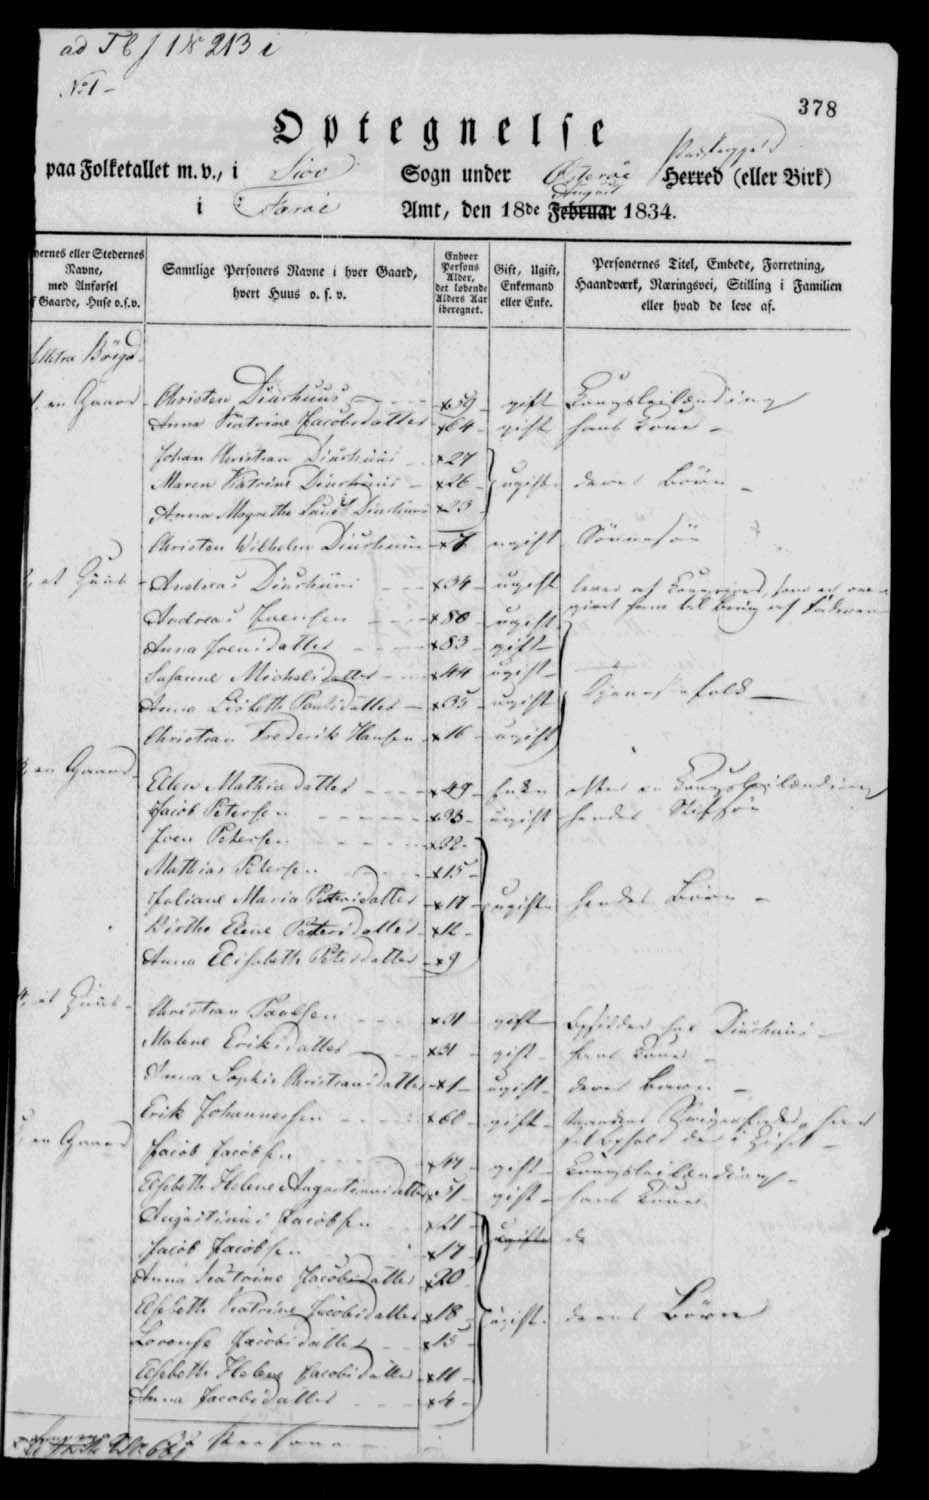 No 1
378
Optegnelse
paa Folketallet m. v., i Siov Sogn under Österöe Herred (eller Birk)
August
i Færöe Amt, den 18de Februar 1834.
ernes eller Stedernes Navne, med Anførsel Gaarde, Huse o.s.v.
Samtlige Personers Navne i hver Gaard, hvert Huus o. s. v.
Enhver Persons Alder, det løbende Alders Aar iberegnet.
Gift, Ugift, Enkemand eller Enke.
Personernes Titel, Embede, Forretning, Haandværk, Næringsvei, Stilling i Familien eller hvad de leve af.
en Gaard Christen Diurhuus 59 gift Kongsleilænding
Anna Katrine Jacobsdatter 64 gift hans Kone
Johan Christian Diurhuus 27
Maren Katrine Diurhuus 26 ugifte deres Börn
Anna Magrethe Diurhuus 23
Christen Wilhelm Diurhuus 7 ugift Sönnesön
et Huus Andreas Diurhuus 34 ugift
Andreas Joensen 80 ugift
Anna Joensdatter 83 gift
Susanne Michelsdatter 44 ugift
Anna Lisbeth Poulsdatter 35 ugift Tjenestefolk
Christian Frederik Hansen 16 ugift
en Gaard Ellen Mathiasdatter 49 Enke efter en Kongsleilænding
Jacob Petersen 23 ugift hendes Stifsön
Joen Petersen 22
Mathias Petersen 15
Juliane Maria Petersdatter 17 ugifte hendes Börn
Birthe Elene Petersdatter 12
Anna Elisabeth Petersdatter 9
4 et Huus Christian Poulsen 31 gift
Malene Eriksdatter 31 gift hans Kone
Anna Sophie Christiansdatter 1 ugift deres Barn
Erik Johannessen 60 gift
en Gaard Jacob Jacobsen 47 gift Kongsleilænding
Elsebeth Helene Augustinusdatter 51 gift hans Kone
Augustinus Jacobsen 21 ugifte
Jacob Jacobsen 17
Anna Katrine Jacobsdatter 20
Elsebeth Katrine Jacobsdatter 18 ugift deres Börn
Lovense Jacobsdatter 15
Elsebeth Helene Jacobsdatter 11
Anna Jacobsdatter 4